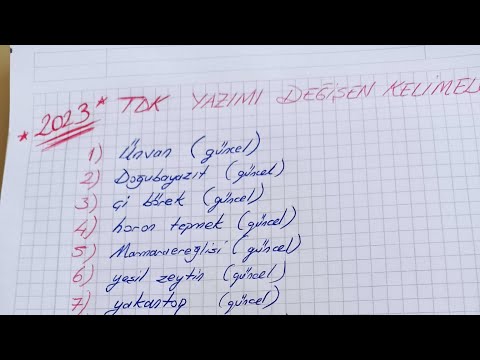 * 2023 * TDK YAZIMI DEĞİŞEN KELİMEL
1) Ünvan (güncel)
2) Doğubayazıt (güncel)
3) çi börek (güncel)
4) horon tepmek (güncel)
5) Marmaraereğlisi (güncel)
6) yeşil zeytin (güncel)
7) yakantop (güncel)